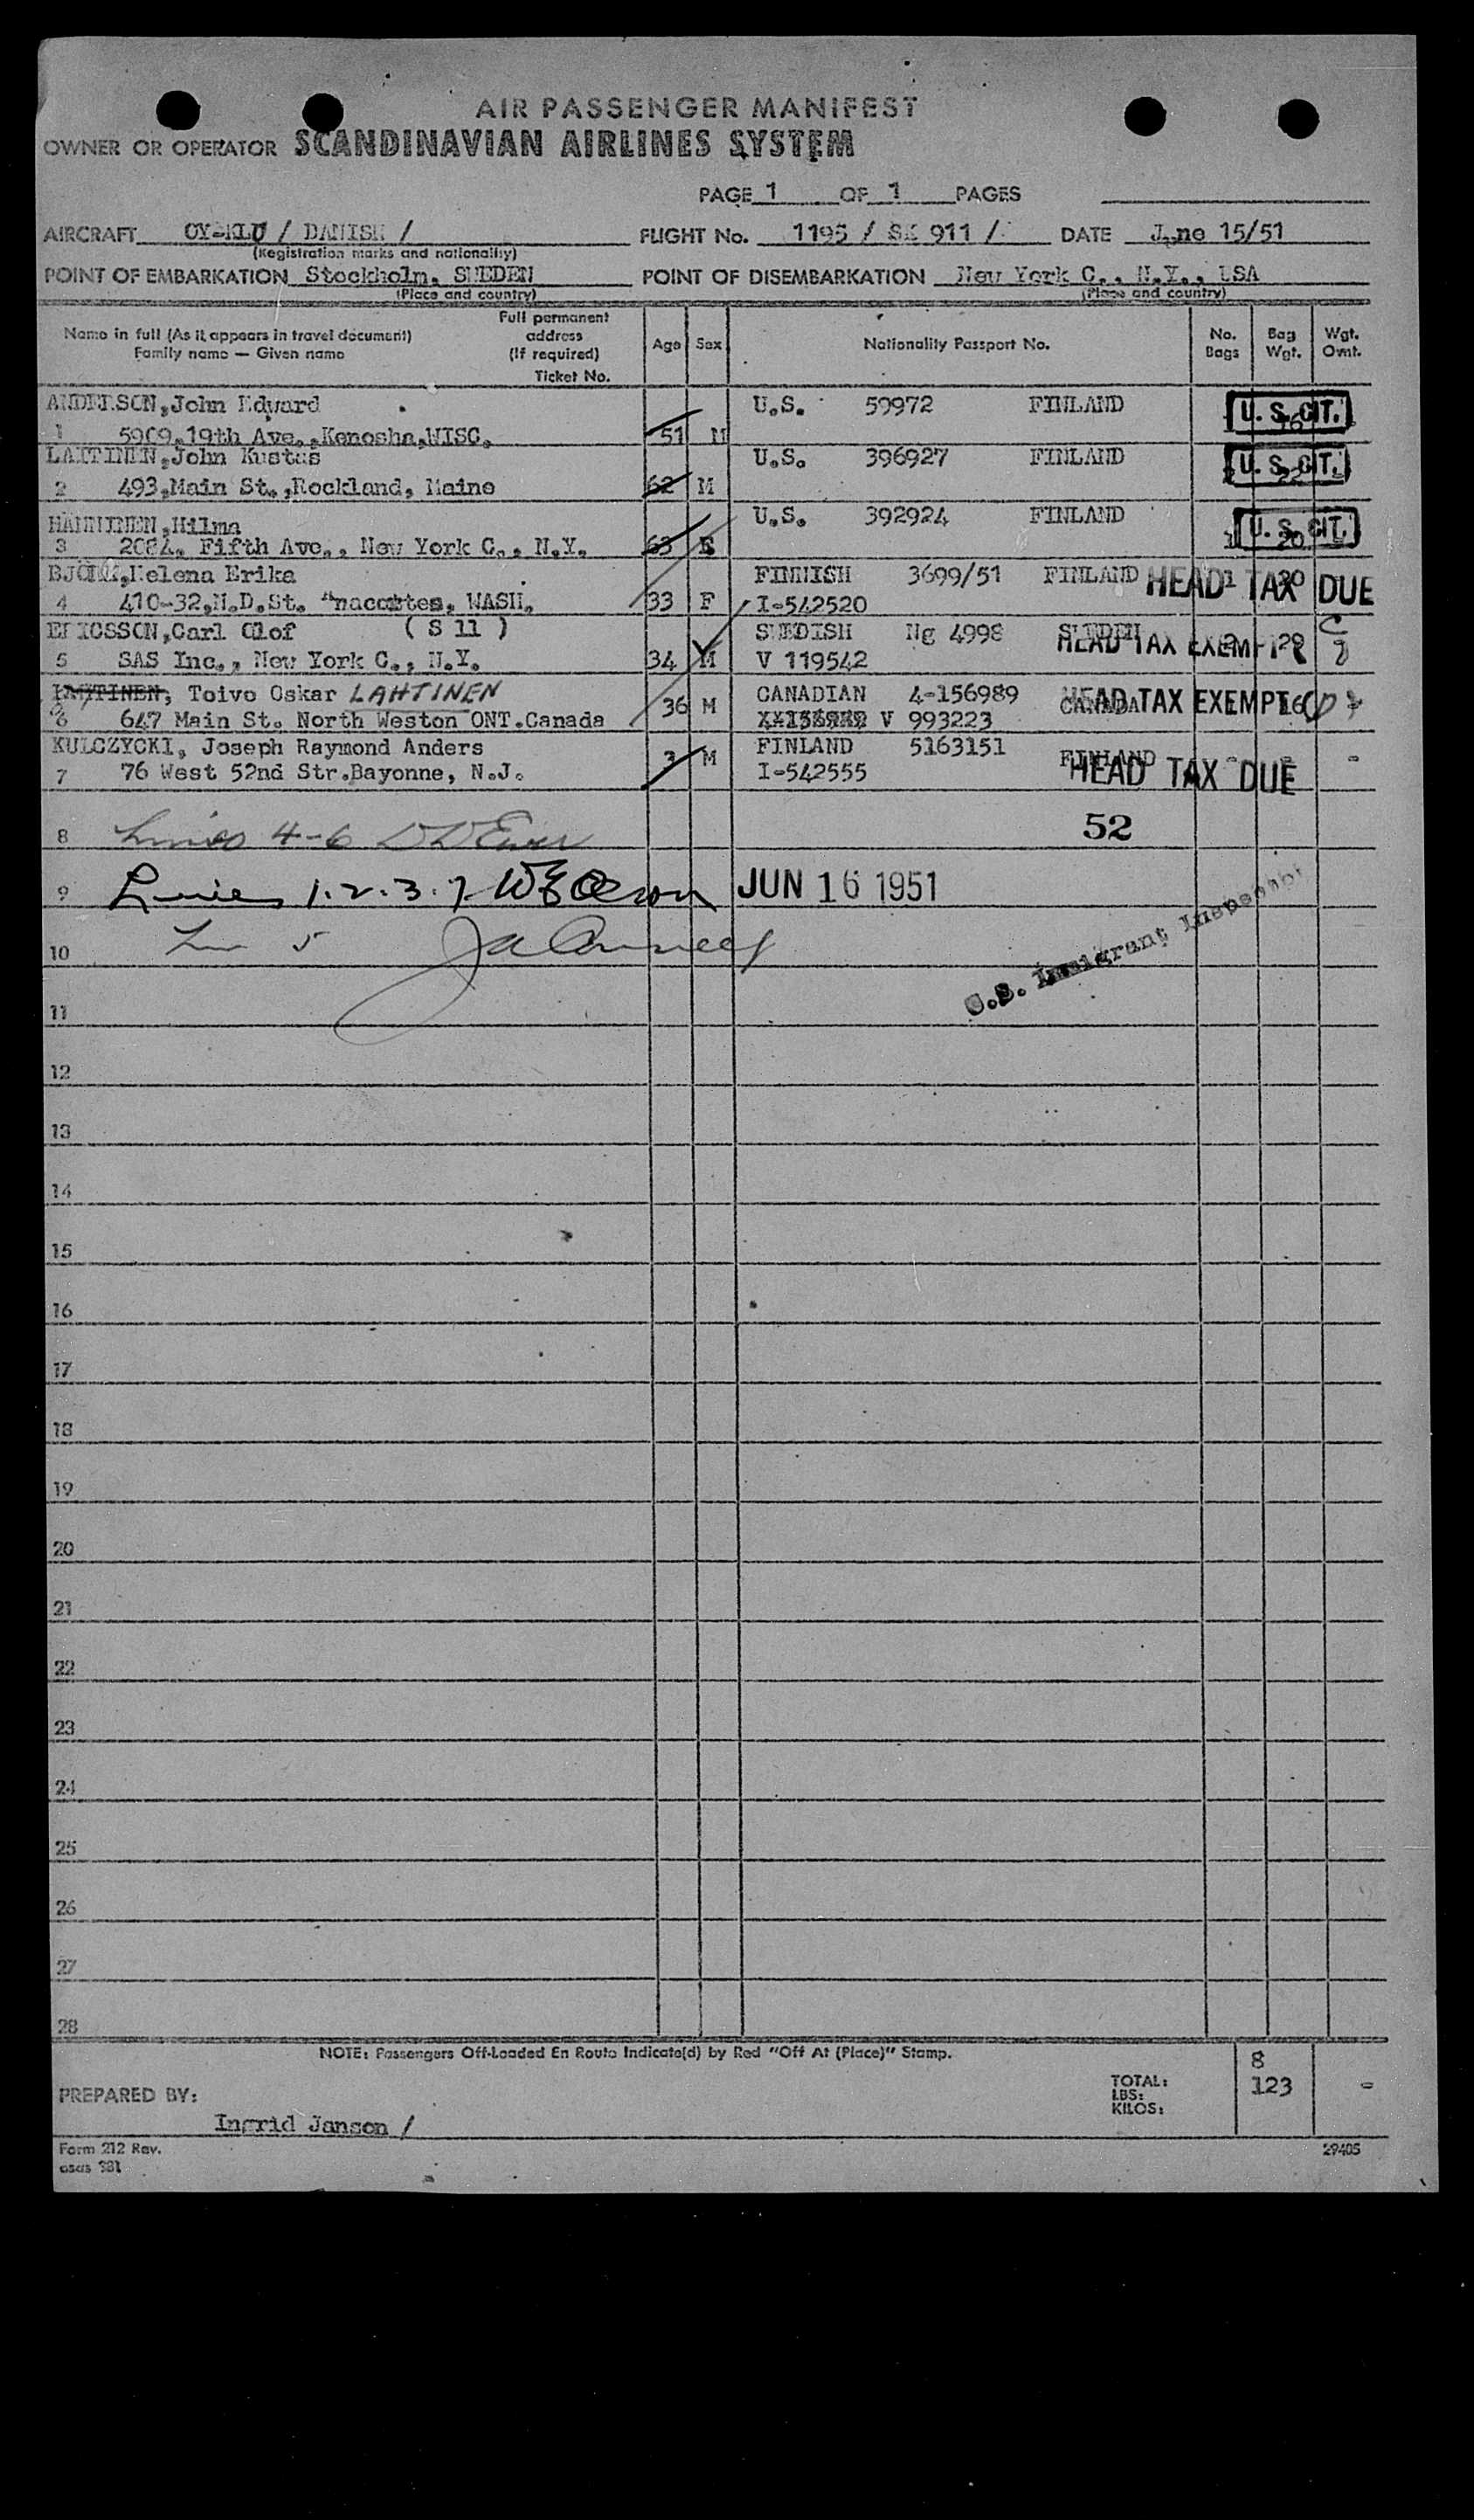 AIR PASSENGER MANIFEST
OWNER OR OPERATOR SCANDINAVIAN AIRLINES SYSTEM
PAGE 1 OF 1 PAGES
AIRCRAFT / DANISH / FLIGHT No. 1195 / SK 911 / DATE June 15/51
(Registration marks and nationality)
POINT OF EMBARKATION Stockholm, SWEDEN POINT OF DISEMBARKATION New York C., N.Y., USA
(Place and country) (Place and country)
Name in full (As it appears in travel document) Family name — Given name
Full permanent address (If required) Ticket No.
Age Sex Nationality Passport No. No. Bags Bag Wgt. Wgt. Ovrt.
ANDERSON,John Edward U.S. 59972 FINLAND U. S. CIT.
1 5909,19th Ave.,Kenosha,WISC. 51 M
LAITINEN,John Kustas U.S. 396927 FINLAND U. S. CIT.
2 493,Main St.,Rockland, Maine 62 M
HANNINEN,Hilma U.S. 392924 FINLAND U. S. CIT.
3 2084, Fifth Ave., New York C., N.Y. 63 F
Helena Erika FINNISH 3699/51 FINLAND HEAD TAX DUE
4 410-32,N.D.St. "nacortes, WASH. 33 F I-542520
ERICSSON,Carl Olof ( S 11 ) SWEDISH Ng 4998 SWEDEN HEAD TAX EXEMPT
5 SAS Inc., New York C., N.Y. 34 M V 119542
LAITINEN, Toivo Oskar LAHTINEN CANADIAN 4-156989 CANADA HEAD TAX EXEMPT
6 647 Main St. North Weston ONT.Canada 36 M V 993223
KULCZYCKI, Joseph Raymond Anders FINLAND 5163151 FINLAND - - -
7 76 West 52nd Str.Bayonne, N.J. 3 M I-542555 HEAD TAX DUE
8 Lines 4-6 52
9 Lines 1.2.3.7 JUN 16 1951
10 5 U.S. Immigrant Inspector
11
12
13
14
15
16
17
18
19
20
21
22
23
24
25
26
27
28
NOTE: Passengers Off-Loaded En Route Indicate(d) by Red "Off At (Place)" Stamp.
TOTAL: 8
LBS: 123 -
KILOS:
PREPARED BY:
Ingrid Janson /
Form 212 Rev. 29405
osas 381